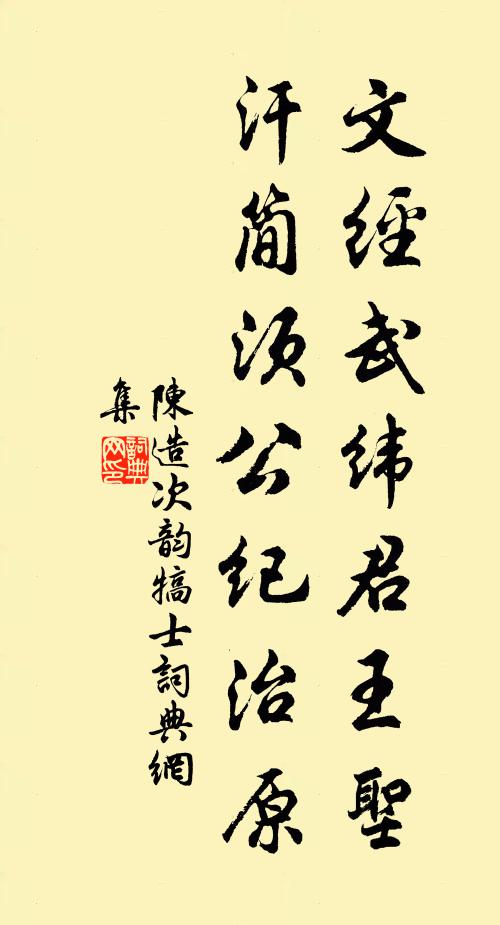 文經武緯君王聖
汗簡須公紀治原
陳造次韵犒士詞典網
集
詞典網印